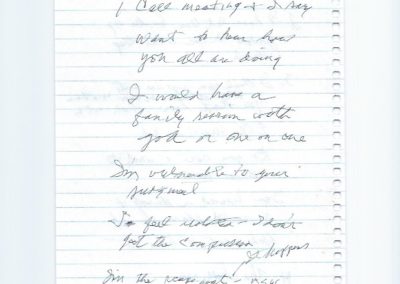 I Call meeting & I say
want to hear how
you all are doing
I would have a
family session with
you or one on one
I'm vulnerable to your
I feel - I don't
get the compassion
it happens
I'm the